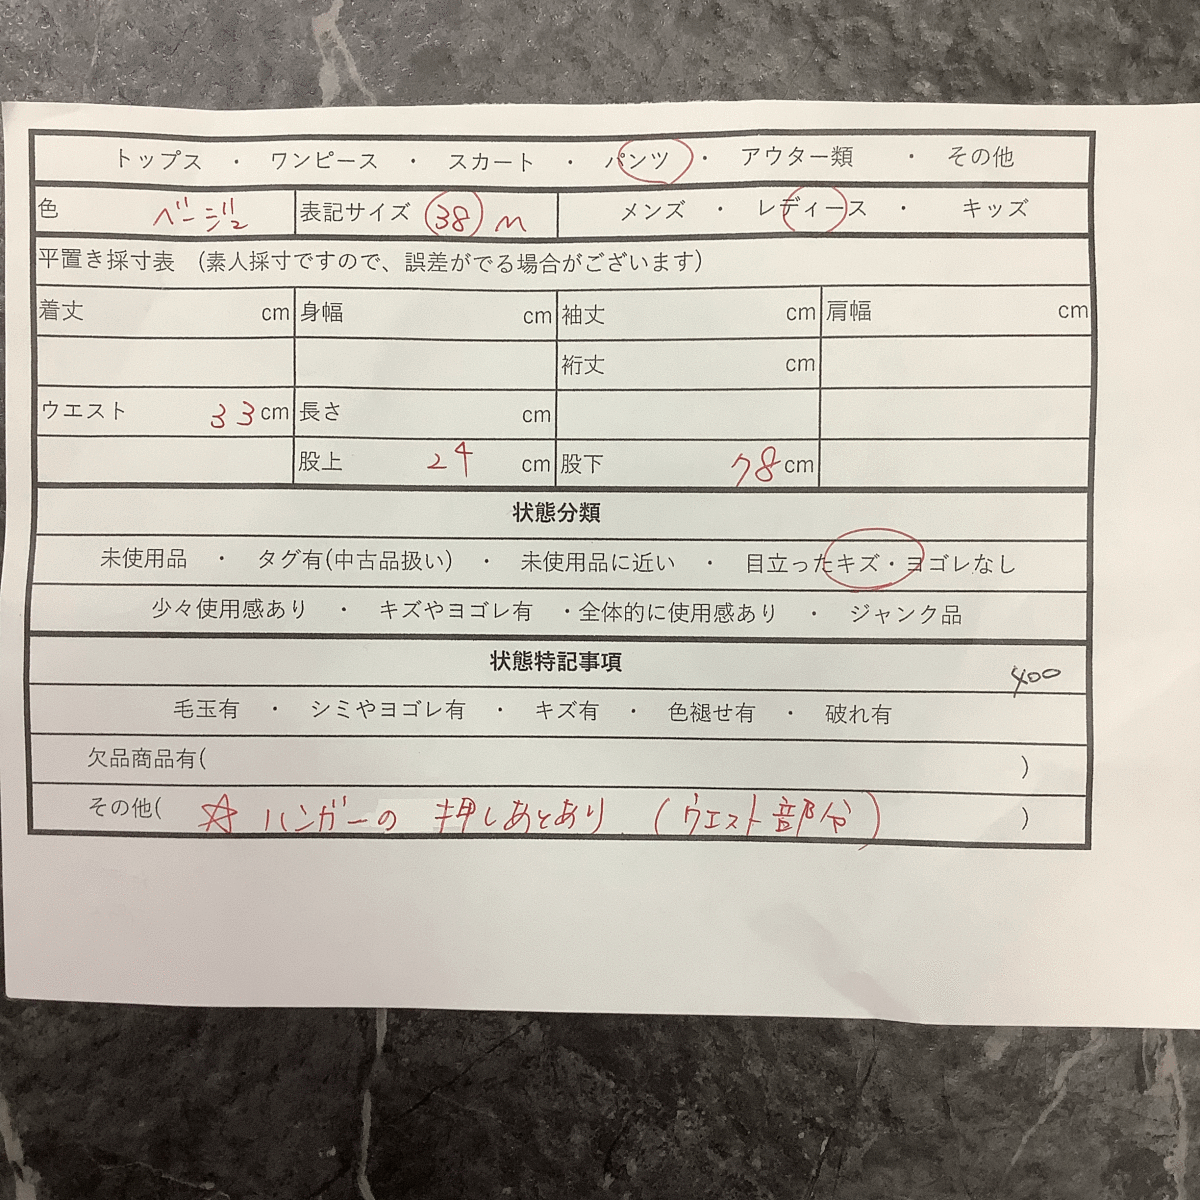 トップス ・ ワンピース ・ スカート ・ パンツ ・ アウター類 ・ その他
色 ベージュ 表記サイズ 38 M メンズ ・ レディース ・ キッズ
平置き採寸表 (素人採寸ですので、誤差がでる場合がございます)
着丈 cm 身幅 cm 袖丈 cm 肩幅 cm
裄丈 cm
ウエスト 33 cm 長さ cm
股上 24 cm 股下 78 cm
状態分類
未使用品 ・ タグ有(中古品扱い) ・ 未使用品に近い ・ 目立ったキズ・ヨゴレなし
少々使用感あり ・ キズやヨゴレ有 ・全体的に使用感あり ・ ジャンク品
状態特記事項 400
毛玉有 ・ シミやヨゴレ有 ・ キズ有 ・ 色褪せ有 ・ 破れ有
欠品商品有( )
その他( ☆ ハンガーの 押しあとあり (ウエスト部分) )